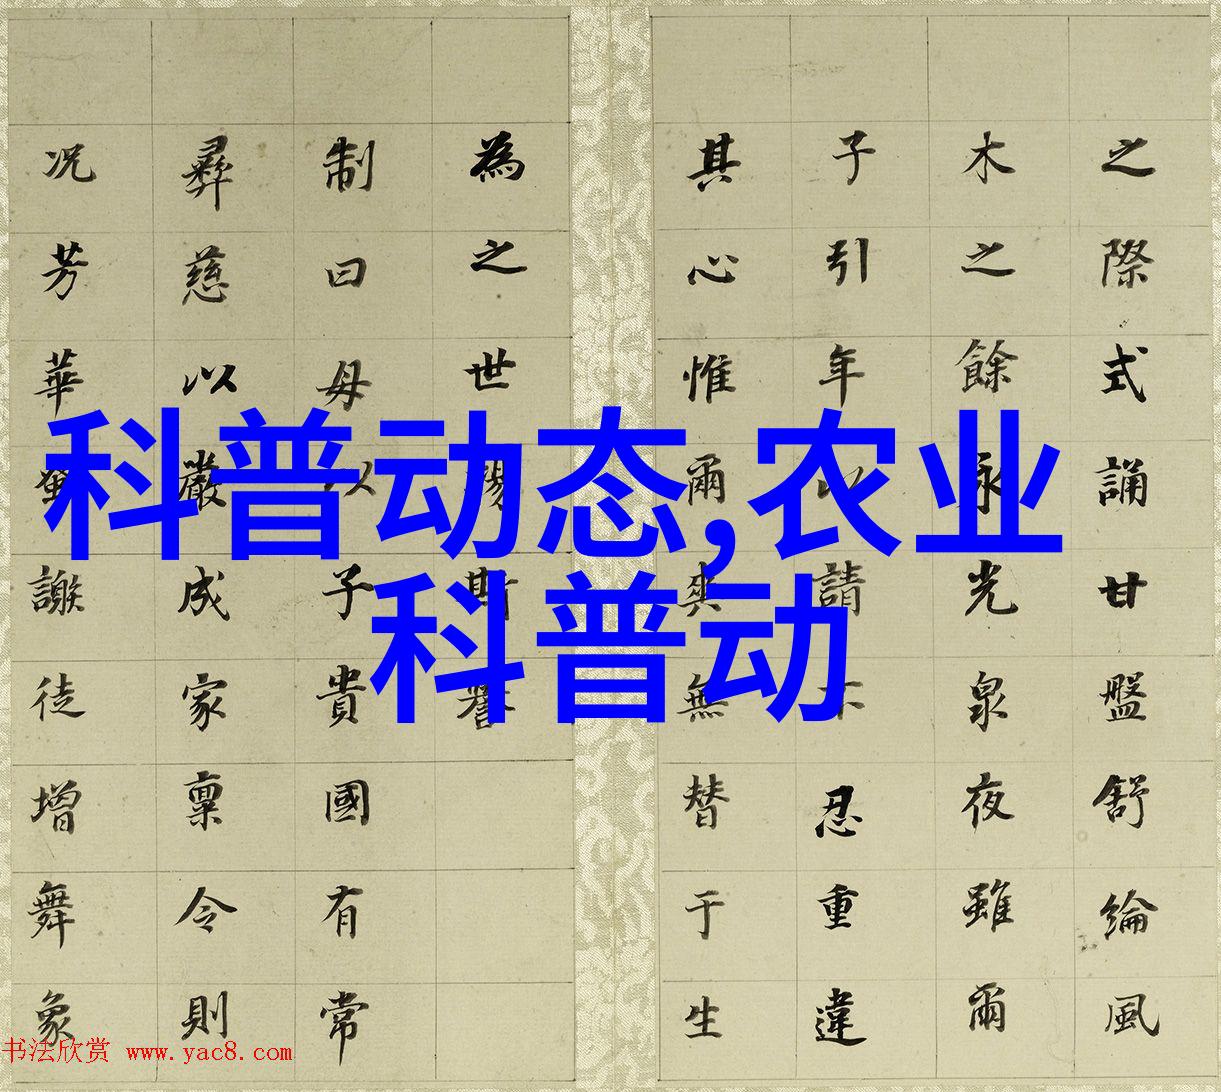 科普动态,农业
科普动
之際式誦甘盤舒綸風
木之餘永光泉夜雖爾
子引年以請不忍重違
其心惟爾奭無替于生
為之世斯譽
制曰母以子貴國有常
彝慈以嚴成家稟令則
况芳華謝徒增舞象
书法欣赏 www.yac8.com